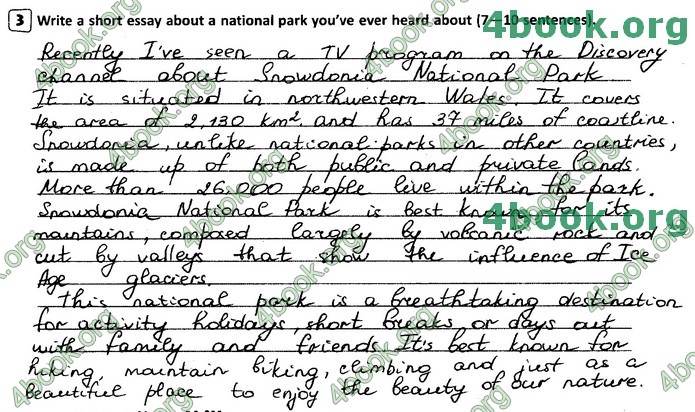 3 Write a short essay about a national park you've ever heard about (7—10 sentences).
Recently I've seen a TV program on the Discovery
channel about Snowdonia National Park
It is situated in northwestern Wales. It covers
the area of 2,130 km² and has 37 miles of coastline.
Snowdonia, unlike national parks in other countries,
is made up of both public and private lands.
More than 26,000 people live within the park.
Snowdonia National Park is best known for its
mantains, composed largely by volcanic rock and
cut by valleys that show the influence of Ice
Age glaciers.
This national park is a breathtaking destination
for activity holidays, short breaks or days out
with family and friends. It's best known for
hiking, mauntain biking, climbing and just as a
beautiful place to enjoy the beauty of our nature.
4book.org
4book.org
4book.org